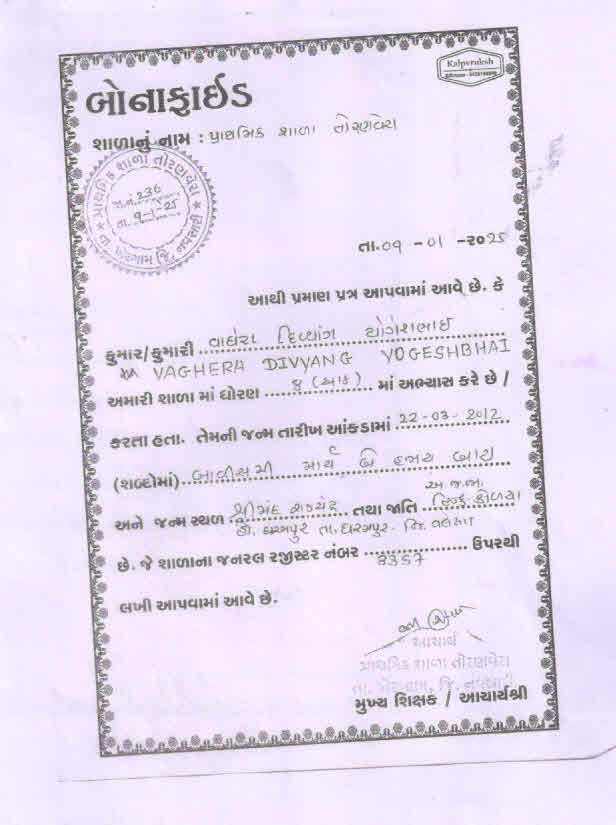 Kalpvruksh
બોનાફાઈડ
શાળાનું નામ : પ્રાથમિક શાળા તોરણવેરા
પ્રાથમિક શાળા તોરણવેરા
જા.નં. 236
તા. 9-1-25
તા. ખેરગામ જિ. નવસારી
તા.09 - 01 -2025
આથી પ્રમાણ પત્ર આપવામાં આવે છે. કે
કુમાર/કુમારી વાઘેરા દિવ્યાંગ યોગેશભાઈ
VAGHERA DIVYANG YOGESHBHAI
અમારી શાળા માં ધોરણ ૮ (આઠ) માં અભ્યાસ કરે છે /
કરતા હતા. તેમની જન્મ તારીખ આંકડામાં 22-03-2012
(શબ્દોમાં) બાવીસમી માર્ચ બે હજાર બાર
અ.જ.જા.
અને જન્મ સ્થળ શ્રીમદ રાજચંદ્ર તથા જાતિ હિન્દુ-કોળચા
હો. ધરમપુર તા. ધરમપુર જિ. વલસાડ
છે. જે શાળાના જનરલ રજીસ્ટર નંબર 3357 ઉપરથી
લખી આપવામાં આવે છે.
આચાર્ય
પ્રાથમિક શાળા તોરણવેરા
તા. ખેરગામ, જિ. નવસારી
મુખ્ય શિક્ષક / આચાર્યશ્રી